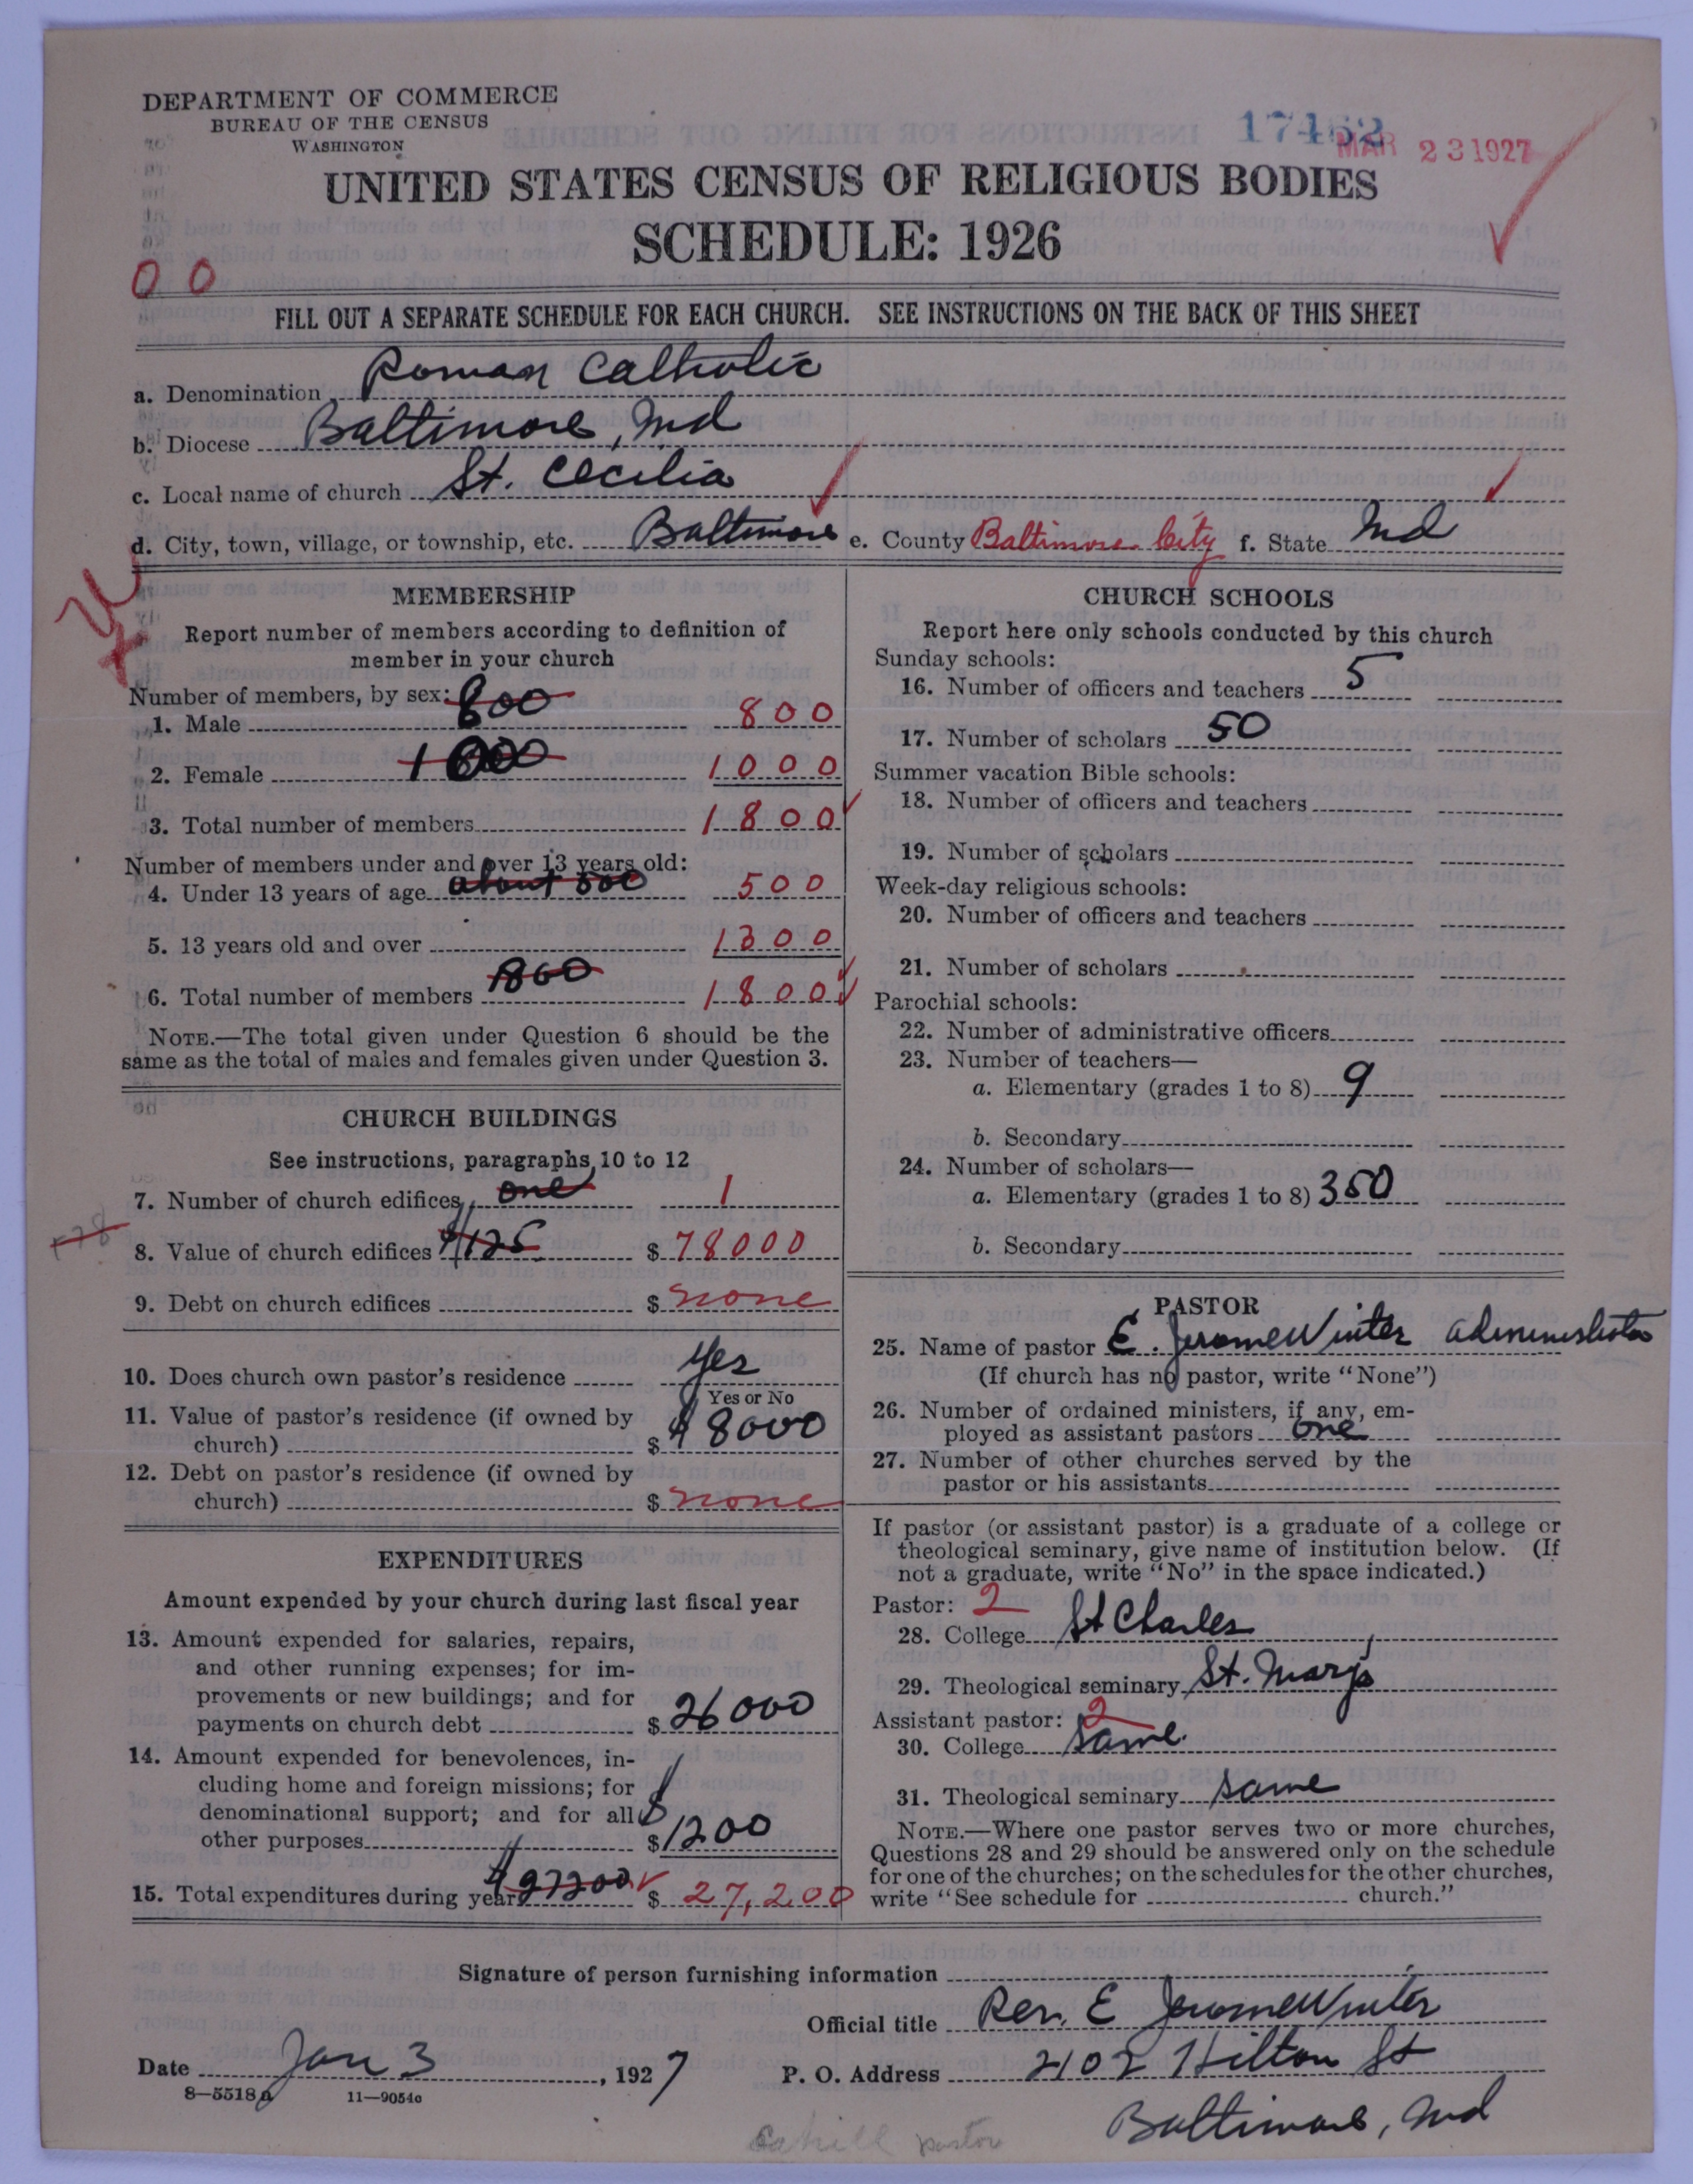 DEPARTMENT OF COMMERCE
BUREAU OF THE CENSUS
WASHINGTON
17452
MAR 23 1927
UNITED STATES CENSUS OF RELIGIOUS BODIES
SCHEDULE: 1926
0 0
FILL OUT A SEPARATE SCHEDULE FOR EACH CHURCH. SEE INSTRUCTIONS ON THE BACK OF THIS SHEET
a. Denomination Roman Catholic
b. Diocese Baltimore, Md
c. Local name of church St. Cecilia
d. City, town, village, or township, etc. Baltimore e. County Baltimore City f. State Md
MEMBERSHIP
Report number of members according to definition of
member in your church
Number of members, by sex: 800
1. Male 800
2. Female 1000 1000
3. Total number of members 1800
Number of members under and over 13 years old:
4. Under 13 years of age about 500 500
5. 13 years old and over 1300
6. Total number of members 1800 1800
NOTE.—The total given under Question 6 should be the
same as the total of males and females given under Question 3.
CHURCH BUILDINGS
See instructions, paragraphs 10 to 12
7. Number of church edifices one 1
8. Value of church edifices $125 $ 78000
9. Debt on church edifices $ none
10. Does church own pastor's residence Yes
Yes or No
11. Value of pastor's residence (if owned by
church) $ $8000
12. Debt on pastor's residence (if owned by
church) $ none
EXPENDITURES
Amount expended by your church during last fiscal year
13. Amount expended for salaries, repairs,
and other running expenses; for im-
provements or new buildings; and for
payments on church debt $ 26000
14. Amount expended for benevolences, in-
cluding home and foreign missions; for
denominational support; and for all
other purposes $ $1200
15. Total expenditures during year $27200 $ 27,200
CHURCH SCHOOLS
Report here only schools conducted by this church
Sunday schools:
16. Number of officers and teachers 5
17. Number of scholars 50
Summer vacation Bible schools:
18. Number of officers and teachers
19. Number of scholars
Week-day religious schools:
20. Number of officers and teachers
21. Number of scholars
Parochial schools:
22. Number of administrative officers
23. Number of teachers—
a. Elementary (grades 1 to 8) 9
b. Secondary
24. Number of scholars—
a. Elementary (grades 1 to 8) 350
b. Secondary
PASTOR
25. Name of pastor E. Jerome Winter administrator
(If church has no pastor, write "None")
26. Number of ordained ministers, if any, em-
ployed as assistant pastors one
27. Number of other churches served by the
pastor or his assistants
If pastor (or assistant pastor) is a graduate of a college or
theological seminary, give name of institution below. (If
not a graduate, write "No" in the space indicated.)
Pastor: 2
28. College St Charles
29. Theological seminary St. Mary's
Assistant pastor: 2
30. College Same
31. Theological seminary same
NOTE.—Where one pastor serves two or more churches,
Questions 28 and 29 should be answered only on the schedule
for one of the churches; on the schedules for the other churches,
write "See schedule for church."
Signature of person furnishing information
Official title Rev. E Jerome Winter
Date Jan 3, 1927 P. O. Address 2102 Hilton St
8—5518a 11—9054c
Baltimore, Md
Cahill pastor